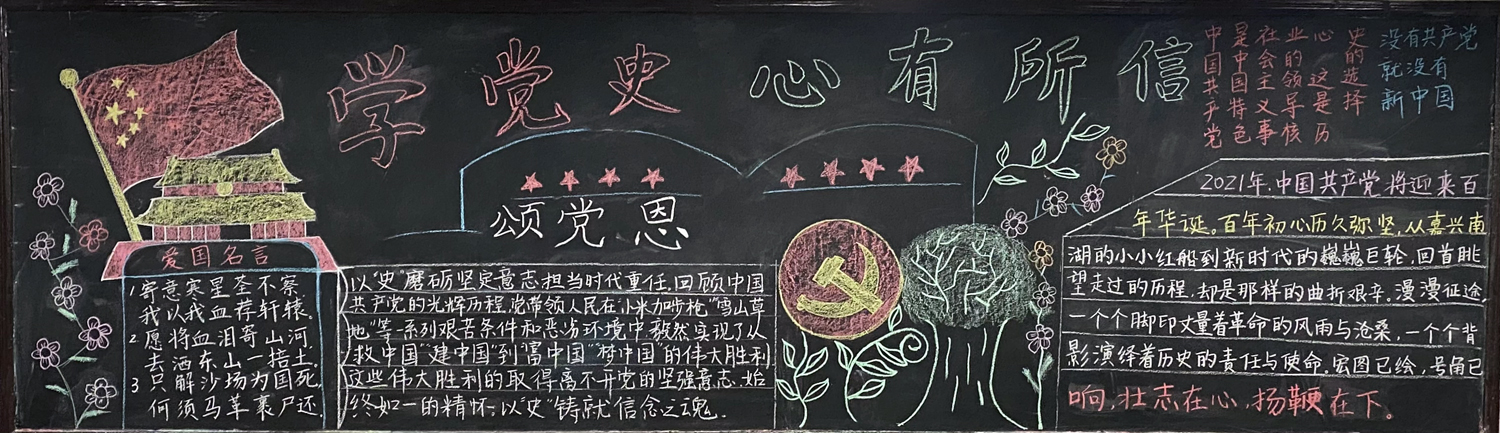 学党史 心有所信
中国共产党
是中国特色
社会主义事
业的领导核
心 这是历
史的选择
没有共产党
就没有
新中国
爱国名言
1 寄意寒星荃不察,
我以我血荐轩辕。
2 愿将血泪寄山河,
去洒东山一掊土。
3 只解沙场为国死,
何须马革裹尸还.
颂党恩
以"史"磨砺坚定意志,担当时代重任.回顾中国
共产党的光辉历程,党带领人民在"小米加步枪""雪山草
地"等一系列艰苦条件和恶劣环境中毅然实现了从
"救中国""建中国"到"富中国""梦中国"的伟大胜利,
这些伟大胜利的取得离不开党的坚强意志、始
终如一的精怀,以"史"铸就信念之魂.
2021年,中国共产党将迎来百
年华诞。百年初心历久弥坚,从嘉兴南
湖的小小红船到新时代的巍巍巨轮,回首眺
望走过的历程,却是那样的曲折艰辛。漫漫征途,
一个个脚印丈量着革命的风雨与沧桑,一个个背
影演绎着历史的责任与使命.宏图已绘,号角已
响,壮志在心,扬鞭在下。